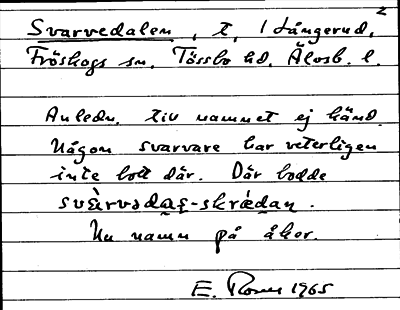 2
Svarvedalen, t, 1 Långerud,
Fröskogs sn. Tössbo hd. Älvsb. l.
Anledn. till namnet ej känd.
Någon svarvare har veterligen
inte bott där. Där bodde
svὲrvədaɽ-skrǽdan.
Nu namn på åker.
E. 1965